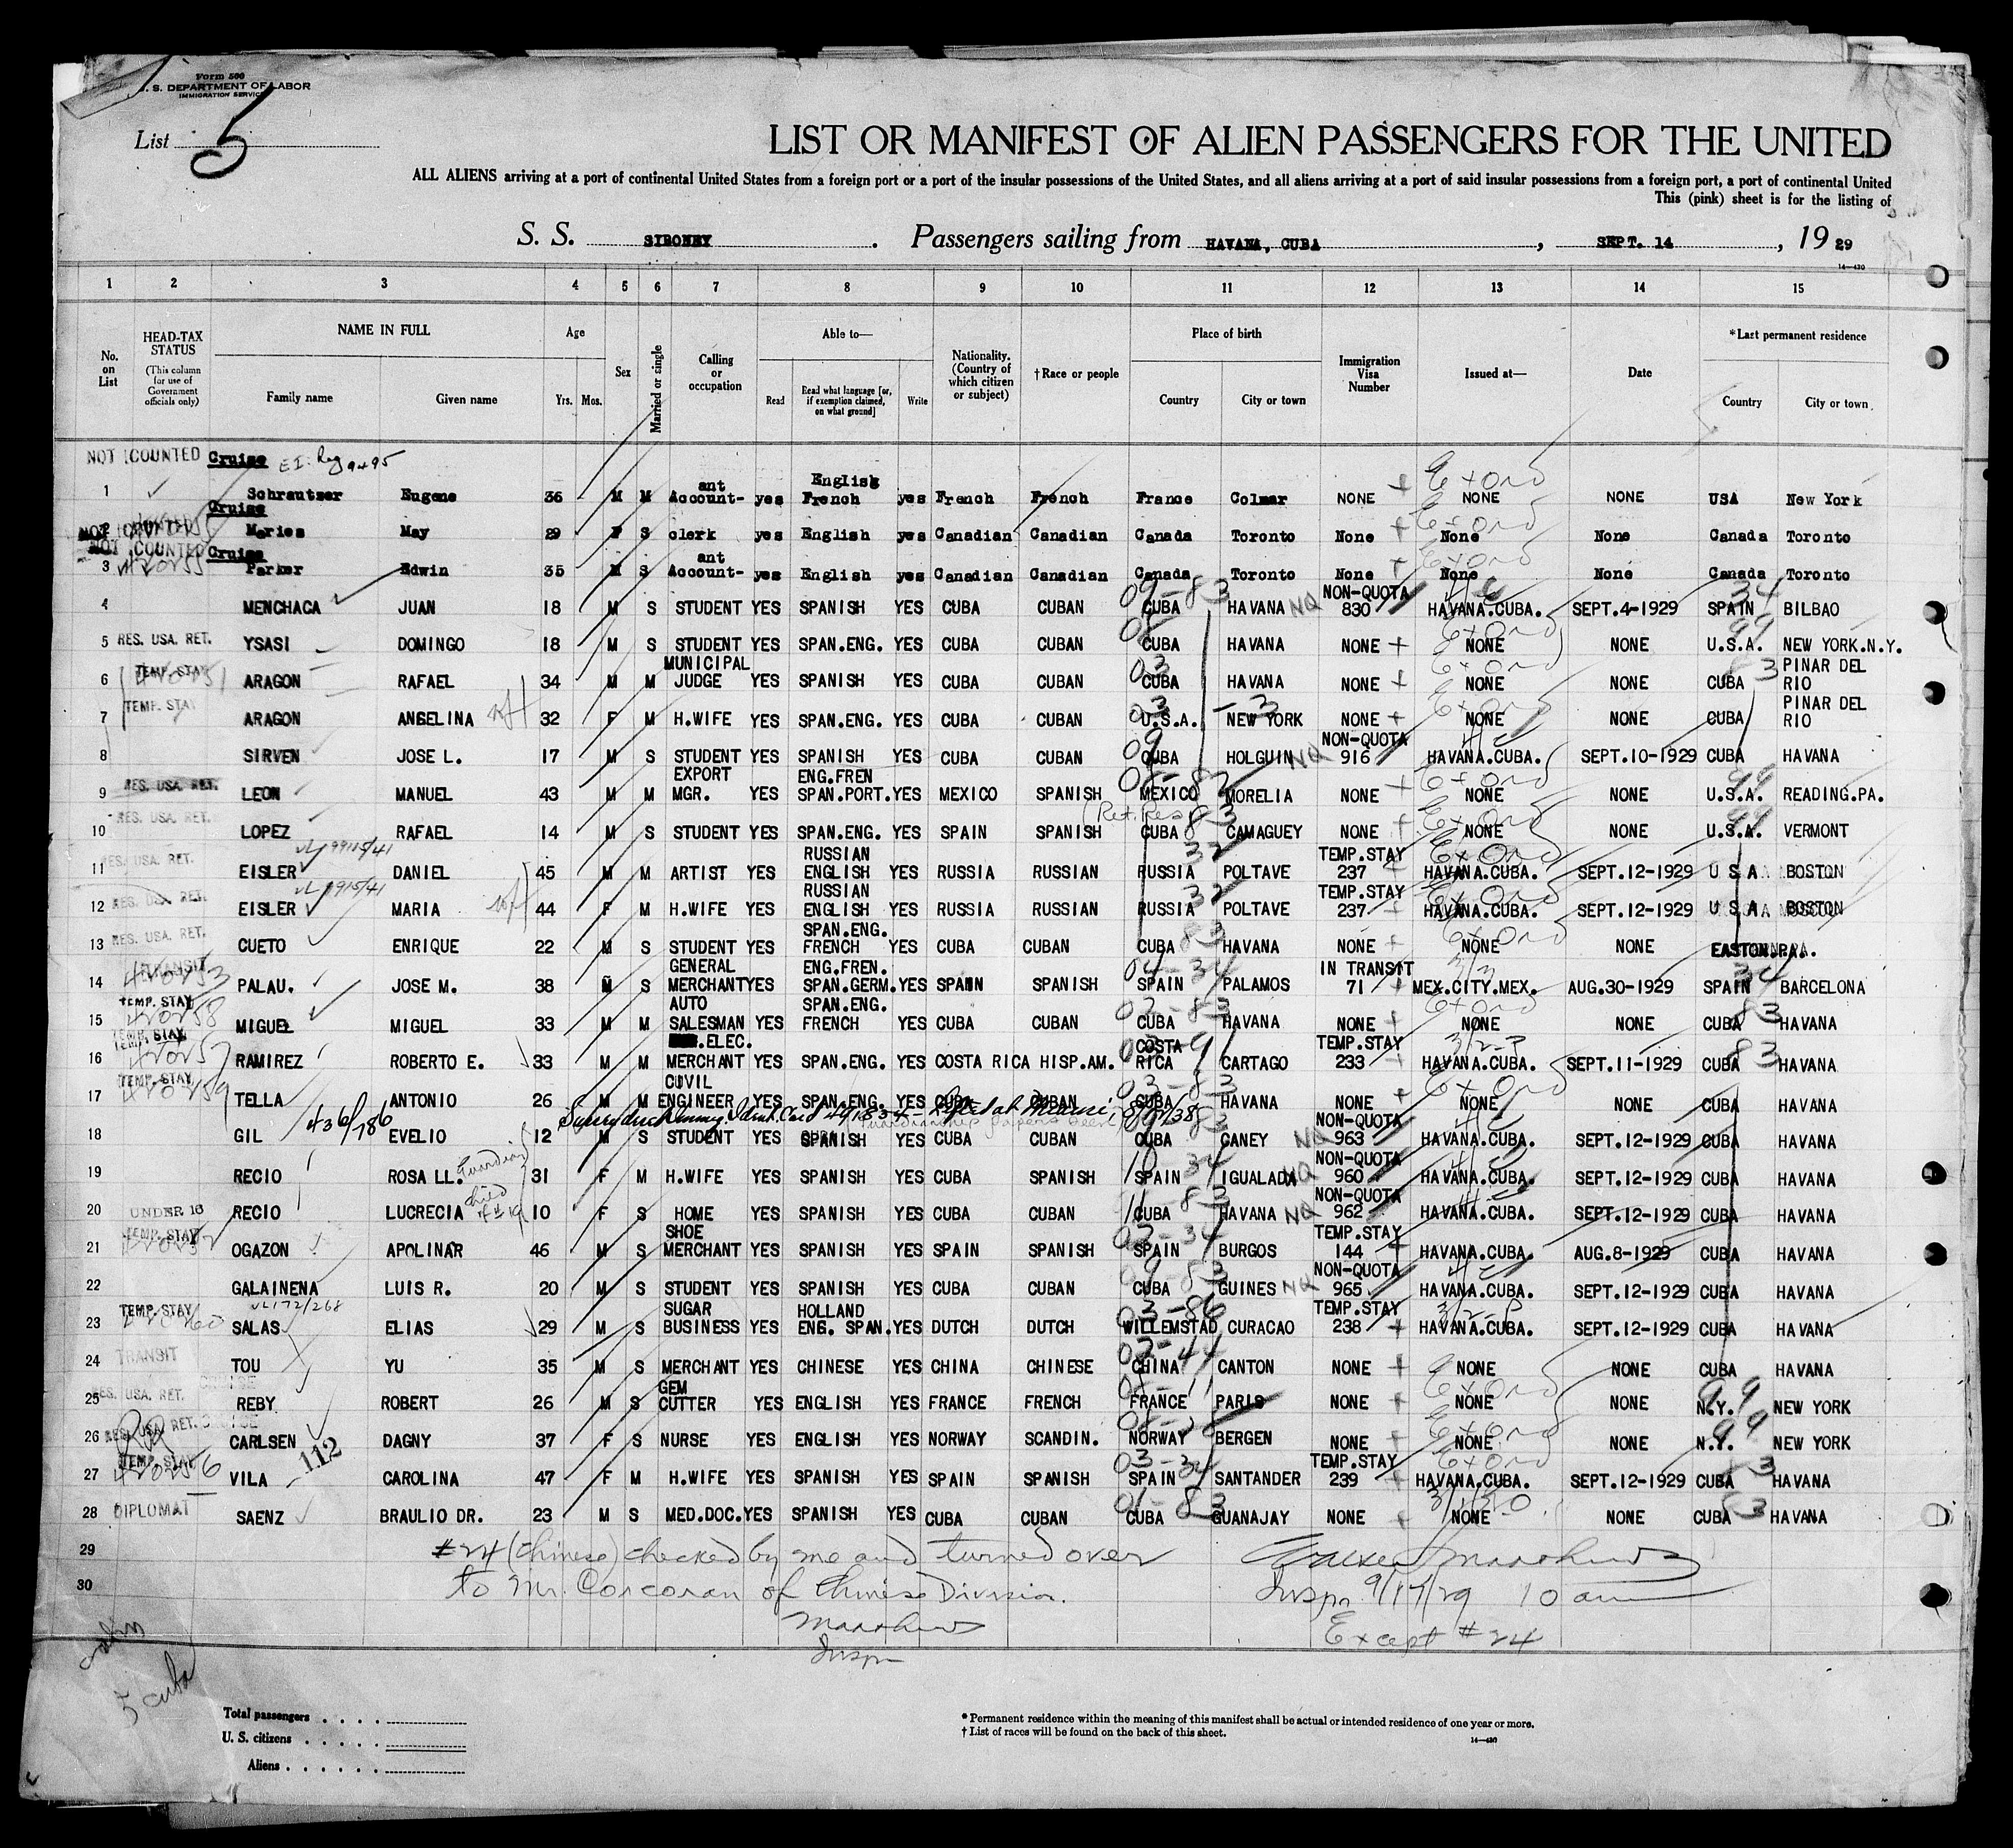 Form 500
U. S. DEPARTMENT OF LABOR
IMMIGRATION SERVICE
List 5
LIST OR MANIFEST OF ALIEN PASSENGERS FOR THE UNITED
ALL ALIENS arriving at a port of continental United States from a foreign port or a port of the insular possessions of the United States, and all aliens arriving at a port of said insular possessions from a foreign port, a port of continental United
This (pink) sheet is for the listing of
S. S. SIBONEY. Passengers sailing from HAVANA, CUBA, SEPT. 14, 19 29
14—430
1 2 3 4 5 6 7 8 9 10 11 12 13 14 15
No. on List
HEAD-TAX STATUS (This column for use of Government officials only)
NAME IN FULL Family name Given name
Age Yrs. Mos.
Sex
Married or single
Calling or occupation
Able to— Read Read what language [or, if exemption claimed, on what ground] Write
Nationality. (Country of which citizen or subject)
†Race or people
Place of birth Country City or town
Immigration Visa Number
Issued at—
Date
*Last permanent residence Country City or town
NOT COUNTED Cruise
1 Schrautzer Eugene 36 M M Account-ant yes English French yes French French France Colmar NONE NONE NONE USA New York
NOT COUNTED Cruise
2 Mories May 29 F S clerk yes English yes Canadian Canadian Canada Toronto None None None Canada Toronto
NOT COUNTED Cruise
3 Parker Edwin 35 M S Account-ant yes English yes Canadian Canadian Canada Toronto None None None Canada Toronto
4 MENCHACA JUAN 18 M S STUDENT YES SPANISH YES CUBA CUBAN CUBA HAVANA NQ NON-QUOTA 830 HAVANA.CUBA. SEPT.4-1929 SPAIN BILBAO
5 RES. USA. RET. YSASI DOMINGO 18 M S STUDENT YES SPAN.ENG. YES CUBA CUBAN CUBA HAVANA NONE NONE NONE U.S.A. NEW YORK.N.Y.
6 TEMP. STAY ARAGON RAFAEL 34 M M MUNICIPAL JUDGE YES SPANISH YES CUBA CUBAN CUBA HAVANA NONE NONE NONE CUBA PINAR DEL RIO
7 TEMP. STAY ARAGON ANGELINA 32 F M H.WIFE YES SPAN.ENG. YES CUBA CUBAN U.S.A. NEW YORK NONE NONE NONE CUBA PINAR DEL RIO
8 SIRVEN JOSE L. 17 M S STUDENT YES SPANISH YES CUBA CUBAN CUBA HOLGUIN NQ NON-QUOTA 916 HAVANA.CUBA. SEPT.10-1929 CUBA HAVANA
9 RES. USA. RET. LEON MANUEL 43 M M EXPORT MGR. YES ENG.FREN SPAN.PORT. YES MEXICO SPANISH MEXICO MORELIA NONE NONE NONE U.S.A. READING.PA.
10 RES. USA. RET. LOPEZ RAFAEL 14 M S STUDENT YES SPAN.ENG. YES SPAIN SPANISH CUBA CAMAGUEY NONE NONE NONE U.S.A. VERMONT
11 RES. USA. RET. EISLER DANIEL 45 M M ARTIST YES RUSSIAN ENGLISH YES RUSSIA RUSSIAN RUSSIA POLTAVE TEMP.STAY 237 HAVANA.CUBA. SEPT.12-1929 U S A BOSTON
12 RES. USA. RET. EISLER MARIA 44 F M H.WIFE YES RUSSIAN ENGLISH YES RUSSIA RUSSIAN RUSSIA POLTAVE TEMP.STAY 237 HAVANA.CUBA. SEPT.12-1929 U S A BOSTON
13 RES. USA. RET. CUETO ENRIQUE 22 M S STUDENT YES SPAN.ENG. FRENCH YES CUBA CUBAN CUBA HAVANA NONE NONE NONE EASTON.PA.
14 TRANSIT PALAU. JOSE M. 38 M S GENERAL MERCHANT YES ENG.FREN. SPAN.GERM. YES SPAIN SPANISH SPAIN PALAMOS IN TRANSIT 71 MEX.CITY.MEX. AUG.30-1929 SPAIN BARCELONA
15 TEMP. STAY MIGUEL MIGUEL 33 M M AUTO SALESMAN YES SPAN.ENG. FRENCH YES CUBA CUBAN CUBA HAVANA NONE NONE NONE CUBA HAVANA
16 TEMP. STAY RAMIREZ ROBERTO E. 33 M M .ELEC. MERCHANT YES SPAN.ENG. YES COSTA RICA HISP.AM. COSTA RICA CARTAGO TEMP.STAY 233 HAVANA.CUBA. SEPT.11-1929 CUBA HAVANA
17 TEMP. STAY TELLA ANTONIO 26 M M CIVIL ENGINEER YES SPAN.ENG. YES CUBA CUBAN CUBA HAVANA NONE NONE NONE CUBA HAVANA
18 GIL 436/786 EVELIO 12 M S STUDENT YES SPANISH YES CUBA CUBAN CUBA CANEY NQ NON-QUOTA 963 HAVANA.CUBA. SEPT.12-1929 CUBA HAVANA
19 RECIO ROSA LL. Guardian 31 F M H.WIFE YES SPANISH YES CUBA SPANISH SPAIN IGUALADA NQ NON-QUOTA 960 HAVANA.CUBA. SEPT.12-1929 CUBA HAVANA
20 UNDER 16 RECIO LUCRECIA child of #19 10 F S HOME YES SPANISH YES CUBA CUBAN CUBA HAVANA NQ NON-QUOTA 962 HAVANA.CUBA. SEPT.12-1929 CUBA HAVANA
21 TEMP. STAY OGAZON APOLINAR 46 M S SHOE MERCHANT YES SPANISH YES SPAIN SPANISH SPAIN BURGOS TEMP.STAY 144 HAVANA.CUBA. AUG.8-1929 CUBA HAVANA
22 GALAINENA LUIS R. 20 M S STUDENT YES SPANISH YES CUBA CUBAN CUBA GUINES NQ NON-QUOTA 965 HAVANA.CUBA. SEPT.12-1929 CUBA HAVANA
23 TEMP. STAY SALAS ELIAS 29 M S SUGAR BUSINESS YES HOLLAND ENG. SPAN. YES DUTCH DUTCH WILLEMSTAD CURACAO TEMP.STAY 238 HAVANA.CUBA. SEPT.12-1929 CUBA HAVANA
24 TRANSIT TOU YU 35 M S MERCHANT YES CHINESE YES CHINA CHINESE CHINA CANTON NONE NONE NONE CUBA HAVANA
25 RES. USA. RET. CRUISE REBY ROBERT 26 M S GEM CUTTER YES ENGLISH YES FRANCE FRENCH FRANCE PARIS NONE NONE NONE N.Y. NEW YORK
26 RES. USA. RET. CRUISE CARLSEN DAGNY 37 F S NURSE YES ENGLISH YES NORWAY SCANDIN. NORWAY BERGEN NONE NONE NONE N.Y. NEW YORK
27 TEMP. STAY VILA 112 CAROLINA 47 F M H.WIFE YES SPANISH YES SPAIN SPANISH SPAIN SANTANDER TEMP.STAY 239 HAVANA.CUBA. SEPT.12-1929 CUBA HAVANA
28 DIPLOMAT SAENZ BRAULIO DR. 23 M S MED.DOC. YES SPANISH YES CUBA CUBAN CUBA GUANAJAY NONE NONE NONE CUBA HAVANA
29 #24 (Chinese) checked by me and turned over
30 to Mr. Corcoran of Chinese Division.
Matthews
Inspr
Matthews
Inspr 9/17/29 10 am
Except #24
5 cuba
Total passengers . . . .
U. S. citizens . . . . .
Aliens . . . . . .
* Permanent residence within the meaning of this manifest shall be actual or intended residence of one year or more.
† List of races will be found on the back of this sheet.
14—430